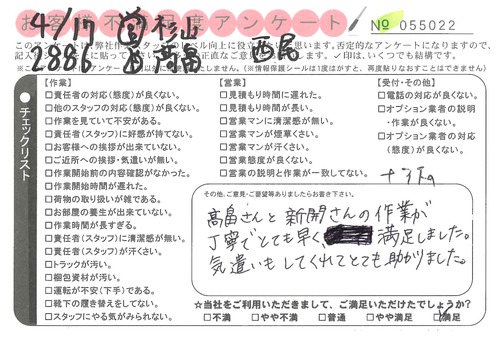 お客様不満足度アンケート
№ 055022
4/17 杉山
2886 高畠 西尾
このアンケートは、弊社作
チェックリスト
【作業】
□責任者の対応(態度)が良くない。
□他のスタッフの対応(態度)が良くない。
□作業を見ていて不安がある。
□責任者(スタッフ)に好感が持てない。
□お客様への挨拶が出来ていない。
□ご近所への挨拶・気遣いが無い。
□作業開始前の内容確認がなかった。
□作業開始時間が遅れた。
□荷物の取り扱いが雑である。
□お部屋の養生が出来ていない。
□作業時間が長すぎる。
□責任者(スタッフ)に清潔感が無い。
□責任者(スタッフ)が汗くさい。
□トラックが汚い。
□梱包資材が汚い。
□運転が不安(下手)である。
□靴下の履き替えをしてない。
□スタッフにやる気がみられない。
【営業】
□見積もり時間に遅れた。
□見積もり時間が長い。
□営業マンに清潔感が無い。
□営業マンが煙草くさい。
□営業マンが汗くさい。
□営業態度が良くない。
□営業の説明と作業が一致してない。
【受付・その他】
□電話の対応が良くない。
□オプション業者の説明
・作業が良くない。
□オプション業者の対応
(態度)が良くない。
その他、ご意見・ご要望等ありましたらお書き下さい。
高畠さんと新開さんの作業が
丁寧でとても早く、満足しました。
気遣いもしてくれてとても助かりました。
☆当社をご利用いただきまして、ご満足いただけたでしょうか?
□不満 □やや不満 □普通 □やや満足 □満足